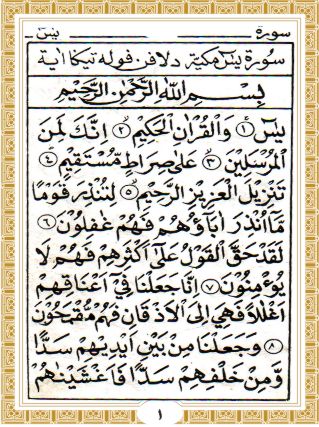 سورة يس
سورة يس مكية دلافن فوله تيݢا اية
بِسْمِ اللهِ الرَّحْمٰنِ الرَّحِيْمِ
يٰسٓ ﴿١﴾ وَالْقُرْاٰنِ الْحَكِيْمِ ﴿٢﴾ اِنَّكَ لَمِنَ
الْمُرْسَلِيْنَ ﴿٣﴾ عَلٰى صِرَاطٍ مُّسْتَقِيْمٍ ﴿٤﴾
تَنْزِيْلَ الْعَزِيْزِ الرَّحِيْمِ ﴿٥﴾ لِتُنْذِرَ قَوْمًا
مَّآ اُنْذِرَ اٰبَآؤُهُمْ فَهُمْ غٰفِلُوْنَ ﴿٦﴾
لَقَدْ حَقَّ الْقَوْلُ عَلٰٓى اَكْثَرِهِمْ فَهُمْ لَا
يُؤْمِنُوْنَ ﴿٧﴾ اِنَّا جَعَلْنَا فِيْٓ اَعْنَاقِهِمْ
اَغْلٰلًا فَهِيَ اِلَى الْاَذْقَانِ فَهُمْ مُّقْمَحُوْنَ
﴿٨﴾ وَجَعَلْنَا مِنْۢ بَيْنِ اَيْدِيْهِمْ سَدًّا
وَّمِنْ خَلْفِهِمْ سَدًّا فَاَغْشَيْنٰهُمْ
١